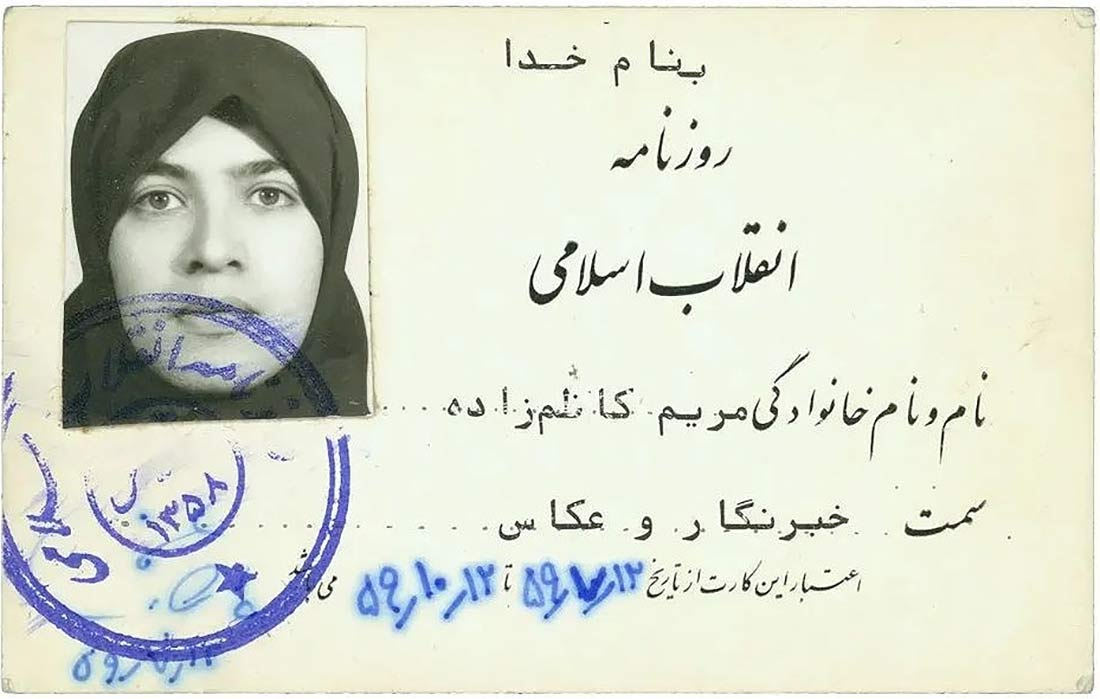 بنام خدا
روزنامه
انقلاب اسلامی
نام و نام خانوادگی مریم کاظم‌زاده
سمت خبرنگار و عکاس
اعتبار این کارت از تاریخ ۵۹٫۷٫۱۲ تا ۵۹٫۱۰٫۱۲ می باشد
۱۳۵۸